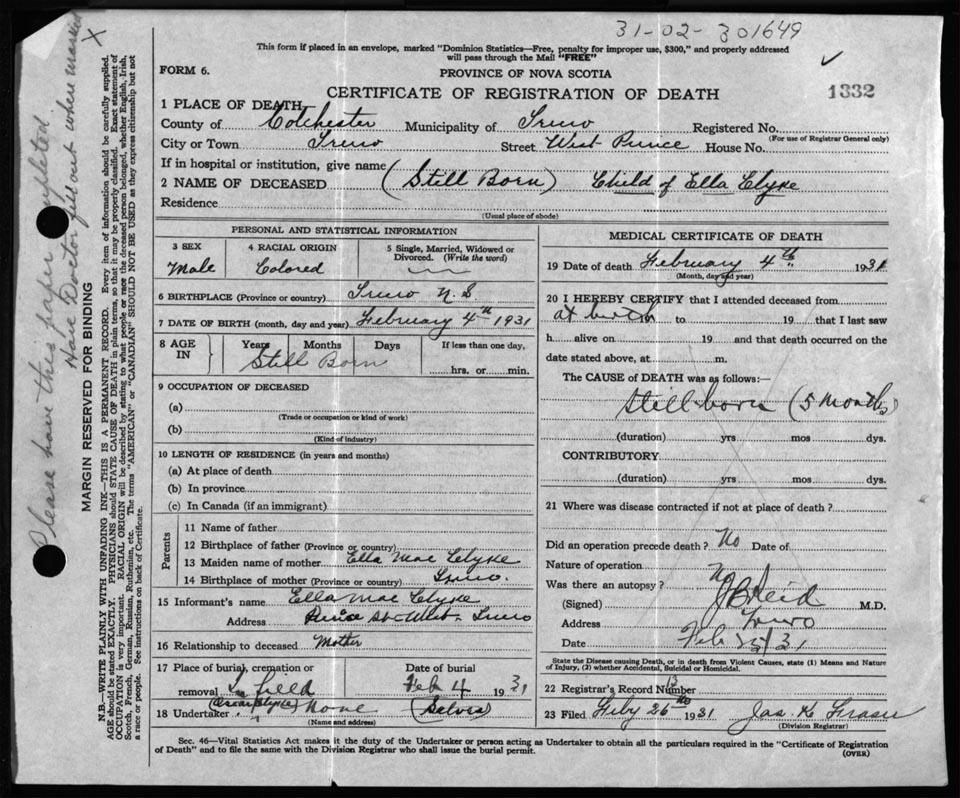 31-02-301649
This form if placed in an envelope, marked "Dominion Statistics—Free, penalty for improper use, $300," and properly addressed
will pass through the Mail "FREE"
FORM 6.
PROVINCE OF NOVA SCOTIA
CERTIFICATE OF REGISTRATION OF DEATH
1332
1 PLACE OF DEATH
County of Colchester Municipality of Truro Registered No.
(For use of Registrar General only)
City or Town Truro Street West Prince House No.
If in hospital or institution, give name
2 NAME OF DECEASED (Still Born) Child of Ella Clyke
Residence
(Usual place of abode)
PERSONAL AND STATISTICAL INFORMATION
3 SEX 4 RACIAL ORIGIN 5 Single, Married, Widowed or
Divorced. (Write the word)
Male Colored
6 BIRTHPLACE (Province or country) Truro N.S.
7 DATE OF BIRTH (month, day and year) February 4th 1931
8 AGE IN Years Months Days If less than one day,
Still Born hrs. or min.
9 OCCUPATION OF DECEASED
(a)
(Trade or occupation or kind of work)
(b)
(Kind of industry)
10 LENGTH OF RESIDENCE (in years and months)
(a) At place of death
(b) In province
(c) In Canada (if an immigrant)
Parents
11 Name of father
12 Birthplace of father (Province or country)
13 Maiden name of mother Ella Mae Clyke
14 Birthplace of mother (Province or country) Truro.
15 Informant's name Ella Mae Clyke
Address Prince St. West Truro
16 Relationship to deceased Mother
17 Place of burial, cremation or Date of burial
removal In field Feb 4 1931
18 Undertaker None
(Name and address)
MEDICAL CERTIFICATE OF DEATH
19 Date of death February 4th 1931
(Month, day and year)
20 I HEREBY CERTIFY that I attended deceased from
at birth 19 to 19 that I last saw
h alive on 19 and that death occurred on the
date stated above, at m.
The CAUSE of DEATH was as follows:—
Stillborn (5 months)
(duration) yrs mos dys.
CONTRIBUTORY
(duration) yrs. mos dys.
21 Where was disease contracted if not at place of death?
Did an operation precede death? No Date of
Nature of operation
Was there an autopsy? No
(Signed) Reid M.D.
Address Truro
Date Feb 31
State the Disease causing Death, or in death from Violent Causes, state (1) Means and Nature
of Injury, (2) whether Accidental, Suicidal or Homicidal.
22 Registrar's Record Number 13
23 Filed Feby 26th 1931 Jas. K. Fraser
(Division Registrar)
Sec. 46—Vital Statistics Act makes it the duty of the Undertaker or person acting as Undertaker to obtain all the particulars required in the "Certificate of Registration
of Death" and to file the same with the Division Registrar who shall issue the burial permit.
(OVER)
Please have this paper completed
Have Doctor fill out when marked X
MARGIN RESERVED FOR BINDING
N.B.—WRITE PLAINLY WITH UNFADING INK—THIS IS A PERMANENT RECORD. Every item of information should be carefully supplied.
AGE should be stated EXACTLY. PHYSICIANS should STATE CAUSE OF DEATH in plain terms, so that it may be properly classified. Exact statement of
OCCUPATION is very important. RACIAL ORIGIN will be described by stating to what people or race the deceased person belonged, whether English, Irish,
Scotch, French, German, Russian, Ruthenian, etc. The terms "AMERICAN" or "CANADIAN" SHOULD NOT BE USED as they express citizenship but not
a race or people. See instructions on back of Certificate.